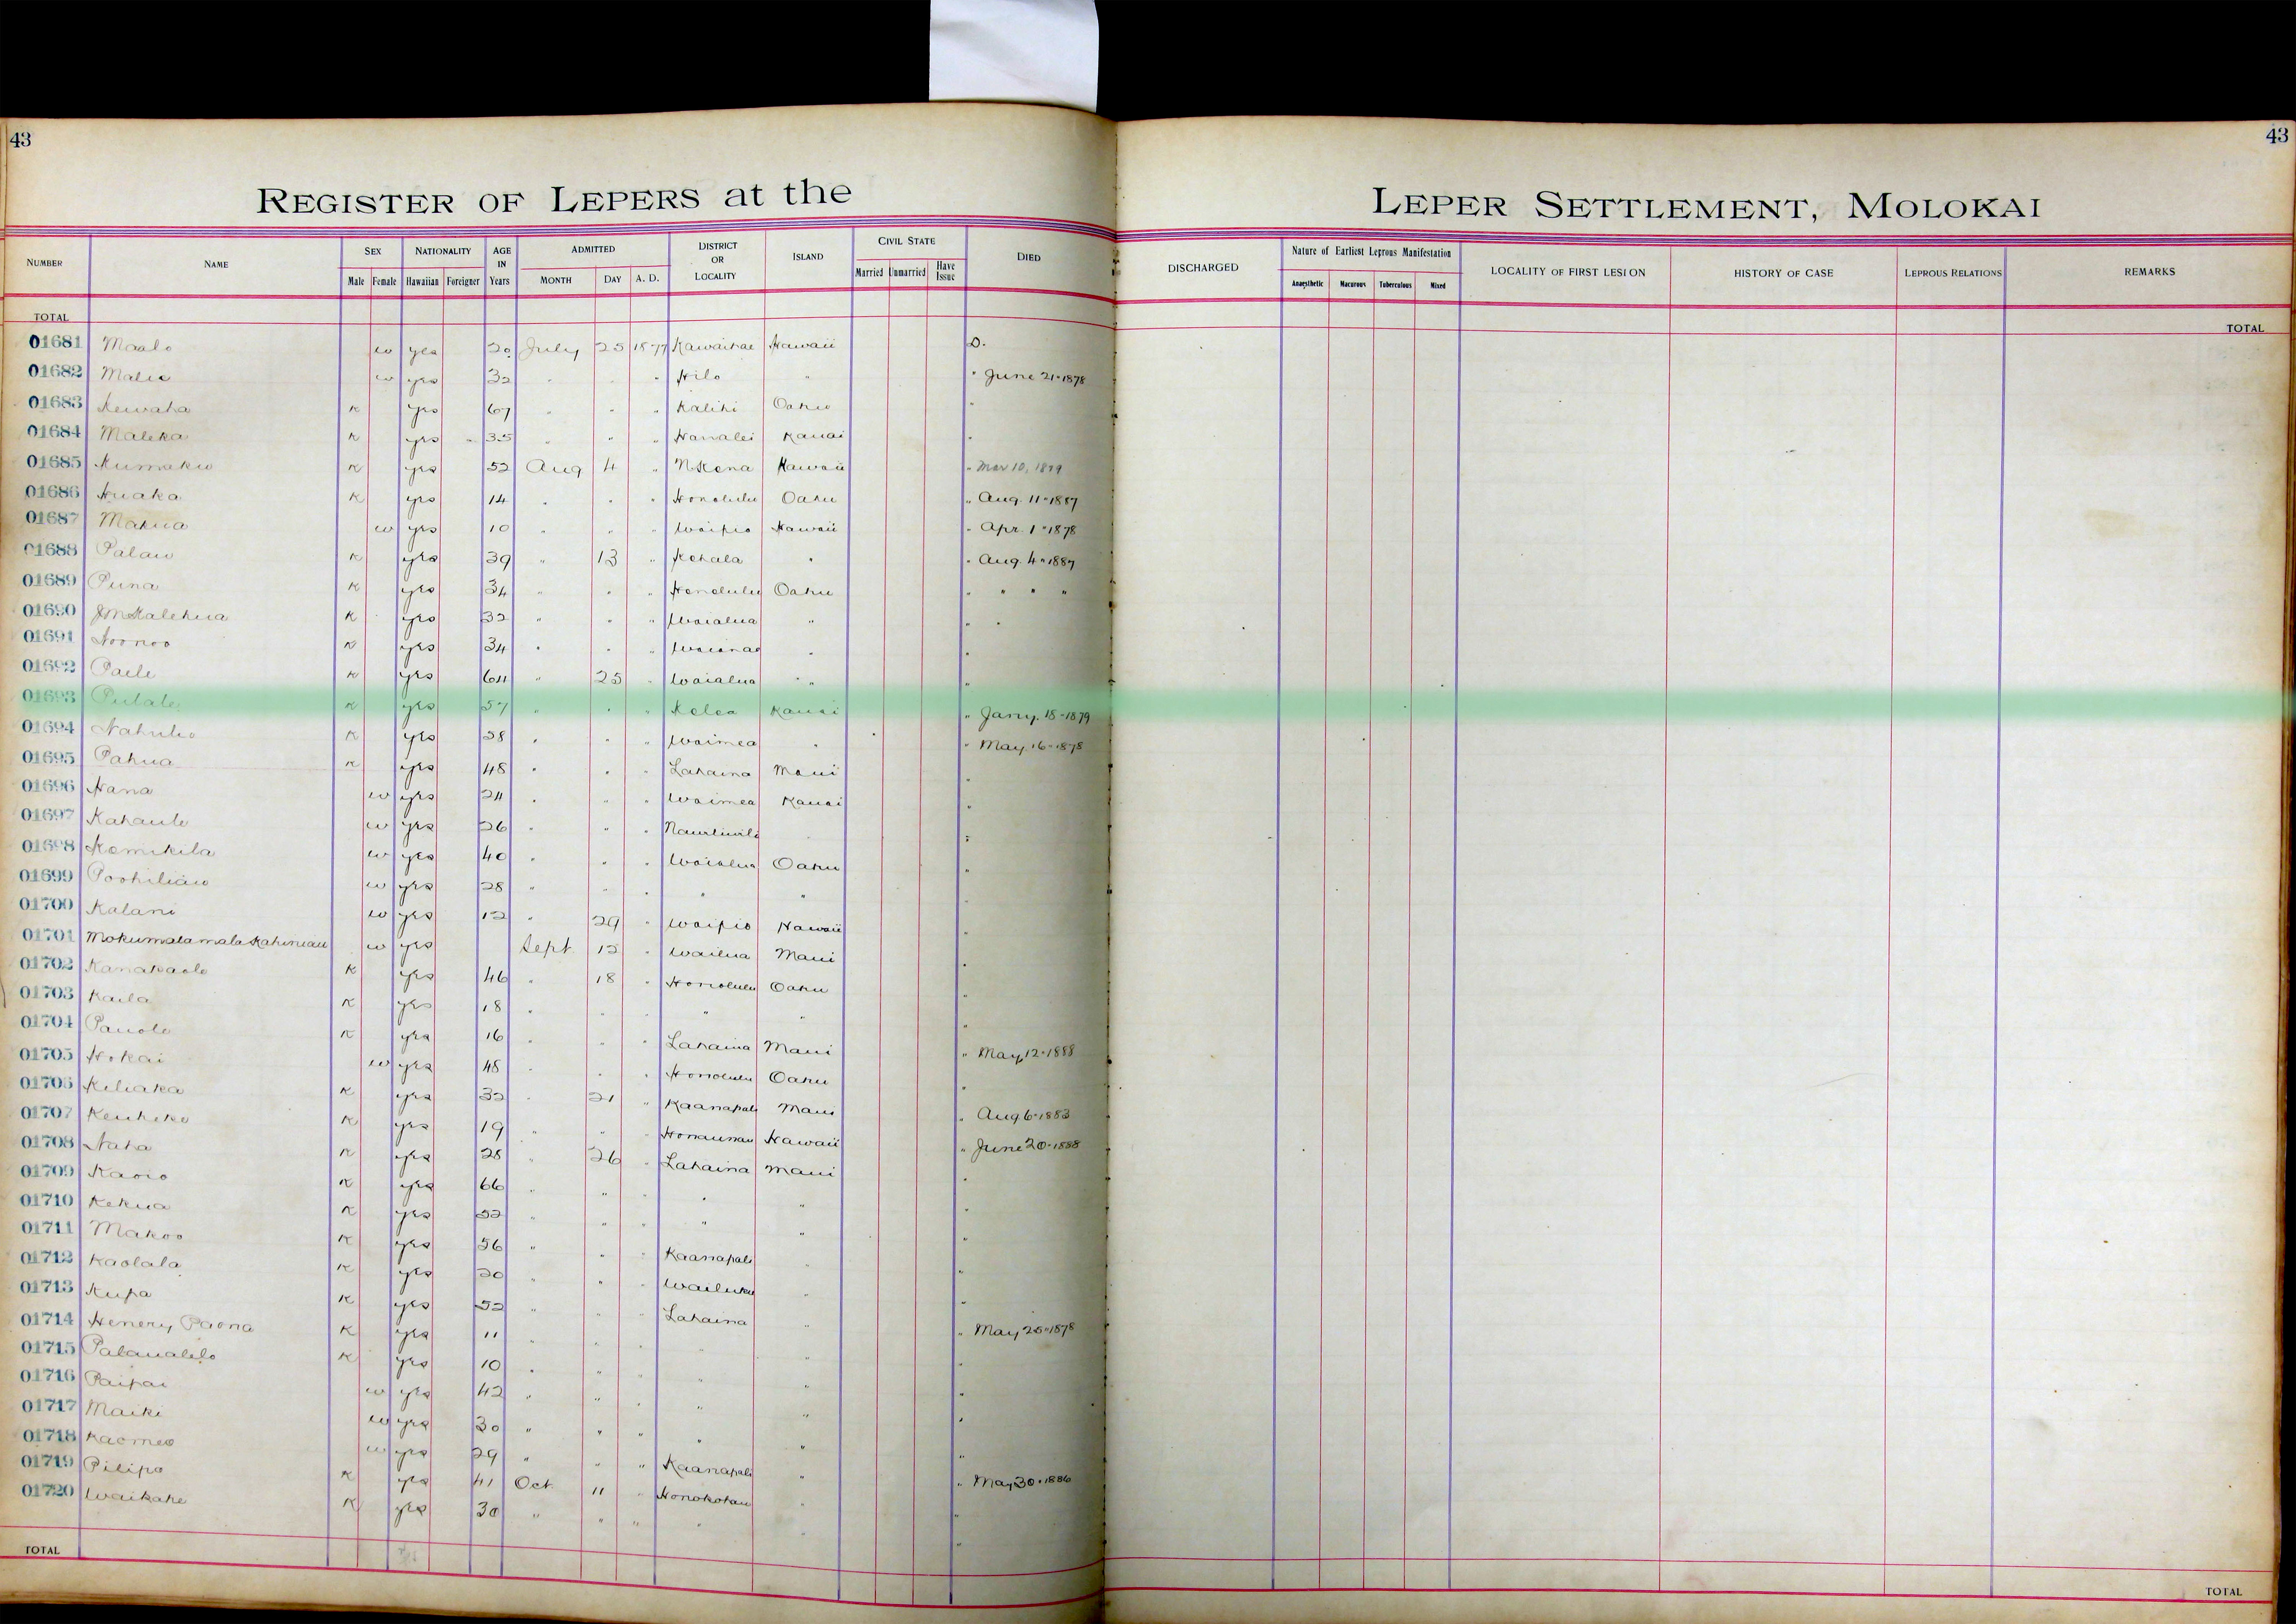 43
43
REGISTER OF LEPERS at the
LEPER SETTLEMENT, MOLOKAI
NUMBER NAME SEX NATIONALITY AGE IN Years ADMITTED DISTRICT OR LOCALITY ISLAND CIVIL STATE DIED
Male Female Hawaiian Foreigner MONTH DAY A. D. Married Unmarried Have Issue
DISCHARGED Nature of Earliest Leprous Manifestation LOCALITY OF FIRST LESION HISTORY OF CASE LEPROUS RELATIONS REMARKS
Anaesthetic Macurous Tuberculous Mixed
TOTAL TOTAL
01681 Maalo w yes 20 July 25 1877 Kawaihae Hawaii D.
01682 w yes 32 " " " Hilo " " June 21-1878
01683 Kewaha K yes 67 " " " Kalihi Oahu "
01684 Maleka K yes 35 " " " Hanalei Kauai "
01685 Kumaku K yes 52 Aug 4 " N Kona Hawaii " Mar 10, 1879
01686 Huaka K yes 14 " " " Honolulu Oahu " Aug. 11-1887
01687 Mahua w yes 10 " " " Waipio Hawaii " Apr. 1-1878
01688 Palau K yes 39 " 13 " Kohala " " Aug. 4-1887
01689 Puna K yes 34 " " " Honolulu Oahu " " " "
01690 K yes 32 " " " Waialua " " "
01691 Hoonoo K yes 34 " " " Waianae " "
01692 Paele K yes 64 " 25 " Waialua " "
01693 Pulale K yes 57 " " " Koloa Kauai " Jany. 18-1879
01694 K yes 28 " " " Waimea " " May. 16-1878
01695 Pahua K yes 48 " " " Lahaina Maui "
01696 Hana w yes 24 " " " Waimea Kauai "
01697 Kahaule w yes 26 " " " "
01698 Kamikila w yes 40 " " " Waialua Oahu "
01699 Poohiliau w yes 28 " " " " "
01700 Kalani w yes 12 " 29 " Waipio Hawaii "
01701 Mokumalamala Kahiniau w yes Sept. 12 " Wailua Maui "
01702 Kanakaole K yes 46 " 18 " Honolulu Oahu "
01703 Kaila K yes 18 " " " " " "
01704 Pauole K yes 16 " " " Lahaina Maui " May, 12-1888
01705 Hokai w yes 48 " " " Honolulu Oahu "
01706 Keliaka K yes 32 " 21 " Kaanapali Maui " Aug 6-1883
01707 Keuheke K yes 19 " " " Honaunau Hawaii " June 20-1888
01708 Naha K yes 28 " 26 " Lahaina Maui "
01709 K yes 66 " " " " " "
01710 Kekua K yes 52 " " " " " "
01711 Makoo K yes 56 " " " Kaanapali " "
01712 Kaolala K yes 20 " " " Wailuku " "
01713 Kupa K yes 52 " " " Lahaina " "
01714 Henery Paona K yes 11 " " " " " " May 25-1878
01715 Palaualelo K yes 10 " " " " " "
01716 Paipai w yes 42 " " " " " "
01717 Maiki w yes 30 " " " " " "
01718 Kaomea w yes 29 " " " Kaanapali " "
01719 Pilipo K yes 41 Oct. 11 " Honokohau " " May 30-1886
01720 Waikahe K yes 30 " " " " " "
TOTAL TOTAL